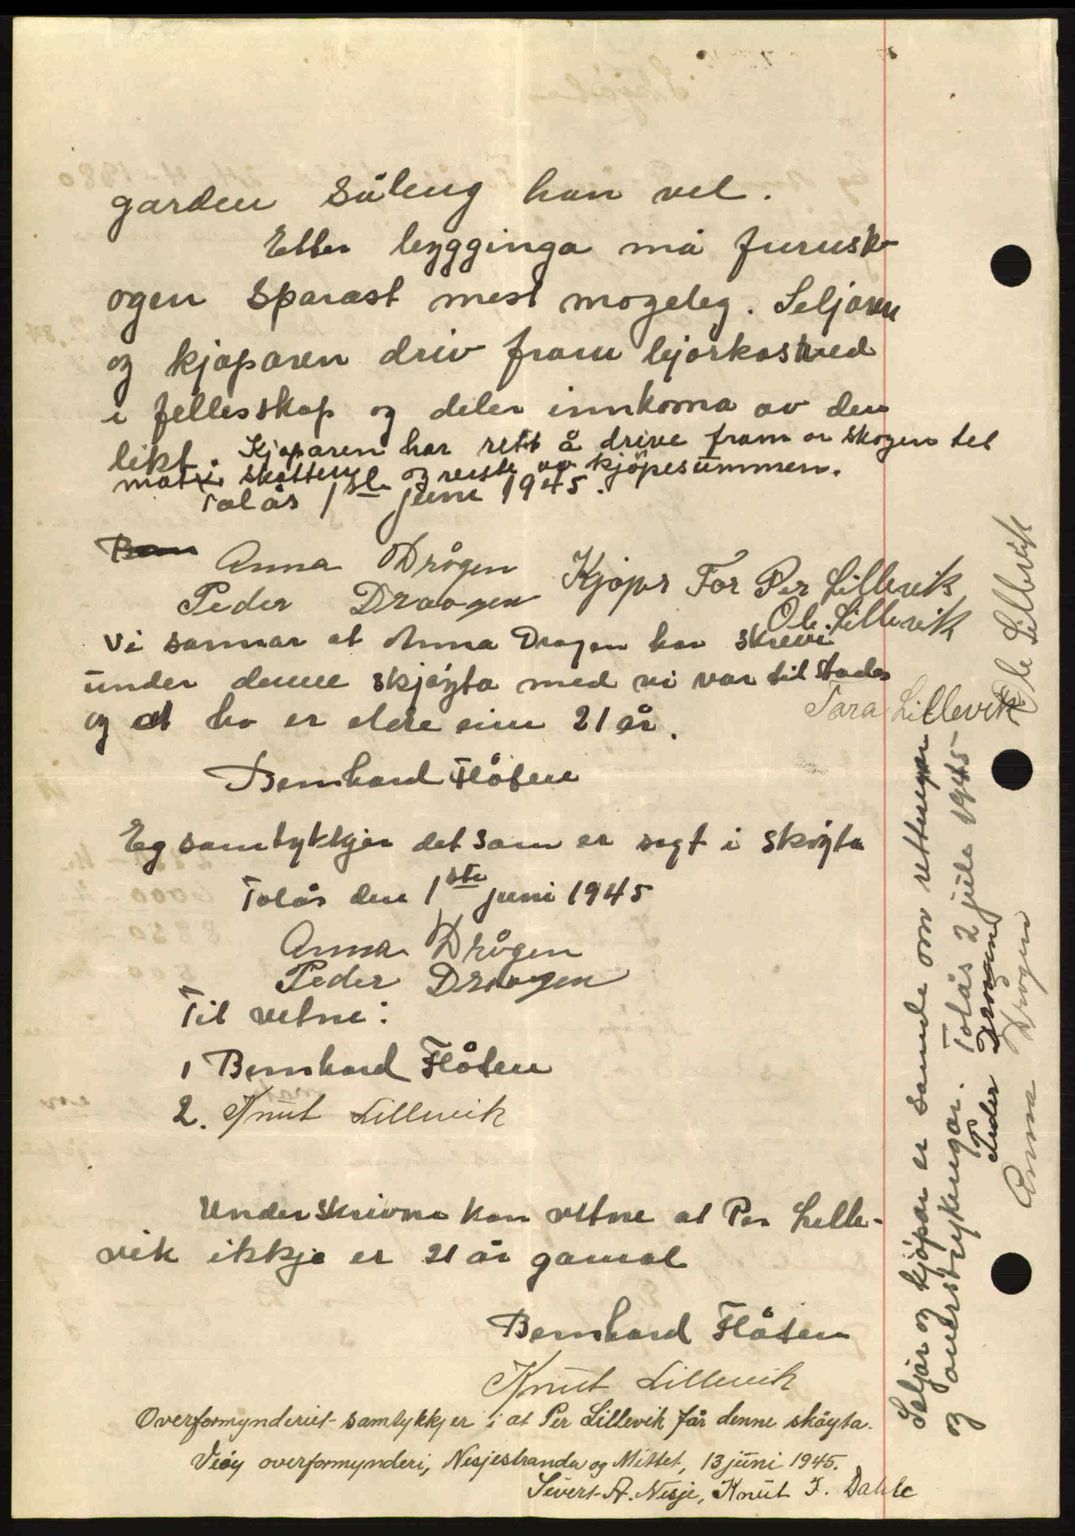 garden såleng han vel.
Etter bygginga må furusk-
ogen sparast mest mogeleg. Seljaren
og kjøparen driv fram bjørkastved
i fellesskap og deler innkoma av den
likt. Kjøparen har rett å drive fram or skogen til
mat, skatten og reste av kjøpesummen.
Tolås 1ste juni 1945.
Anna Drågen Kjøpr For Per Lillevik
Peder Draagen Ole Lillevik
Vi sannar at Anna Drogen har skrevi
under denne skjøyta med vi var til stades
og at ho er eldre einn 21 år.
Tora Lillevik
Ole Lillevik
Bernhard Flåten
Eg samtykkjer det som er sagt i skøyta
Tolås den 1ste juni 1945
Anna Drågen
Peder Draagen
Til vetne:
1 Bernhard Flåten
2. Knut Lillevik
Underskrivne kan vetne at Per Lille-
vik ikkje er 21 år gamal
Bernhard Flåten
Knut Lillevik
Overformynderiet samtykkjer i at Per Lillevik får denne skøyta.
Veøy overformynderi, Nesjestranda og Mittet, 13 juni 1945.
Sivert A. Nesje, Knut T. Dahle
Seljar og kjøpar er samde om rettingar
og overstrykingar. Tolås 2 jule 1945
Peder Drogen
Anna Drogen